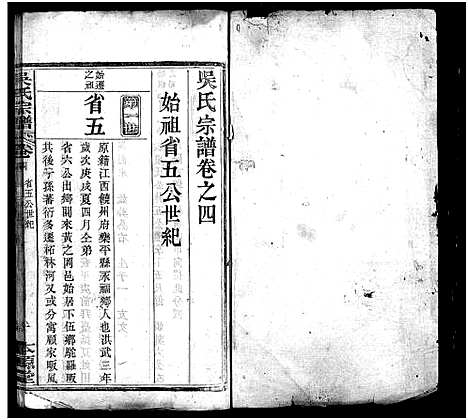 吳氏宗譜卷之四
始祖省五公世紀
第一世
始遷之祖
省五
原籍江西饒州府樂平縣永福鄉人也洪武三年
歲次庚戌夏四月仝弟
省六公出鄉關來黃之岡邑始居不伍鄉駝羅畈
其後子孫蕃衍多遷柘林河又分寓顧家畈風
吳氏宗譜
卷
省五公世紀